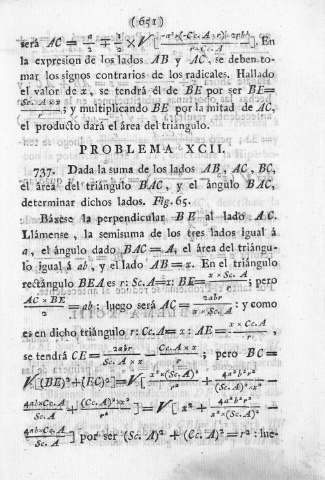 (651)
será AC = a/2 ∓ 1/2 × V[ -a²×(-Cc. A ± r)-2rbb / r-Cc. A ]. En
la expresion de los lados AB y AC, se deben to-
mar los signos contrarios de los radicales. Hallado
el valor de x, se tendrá él de BE por ser BE=
Sc. A × x / r ; y multiplicando BE por la mitad de AC,
el producto dará el área del triángulo.
PROBLEMA XCII.
737. Dada la suma de los lados AB, AC, BC,
el área del triángulo BAC, y el ángulo BAC,
determinar dichos lados. Fig. 65.
Báxese la perpendicular BE al lado AC.
Llámense, la semisuma de los tres lados igual á
a, el ángulo dado BAC = A, el área del triángu-
lo igual á ab, y el lado AB = x. En el triángulo
rectángulo BEA es r: Sc. A = x: BE = x × Sc. A / r ; pero
AC × BE / 2 = ab : luego será AC = 2abr / x × Sc. A : y como
es en dicho triángulo r: Cc. A = x : AE = x × Cc. A / r ,
se tendrá CE = 2abr / Sc. A × x - Cc. A × x / r ; pero BC =
V[(BE)² + (EC)²] = V[ x² × (Sc. A)² / r² + 4a²b²r² / (Sc. A)² × x² -
4ab × Cc. A / Sc. A + (Cc. A)² × x² / r² ] = V[ x² + 4a²b²r² / x² × (Sc. A)² -
4ab × Cc. A / Sc. A ] por ser (Sc. A)² + (Cc. A)² = r² : lue-